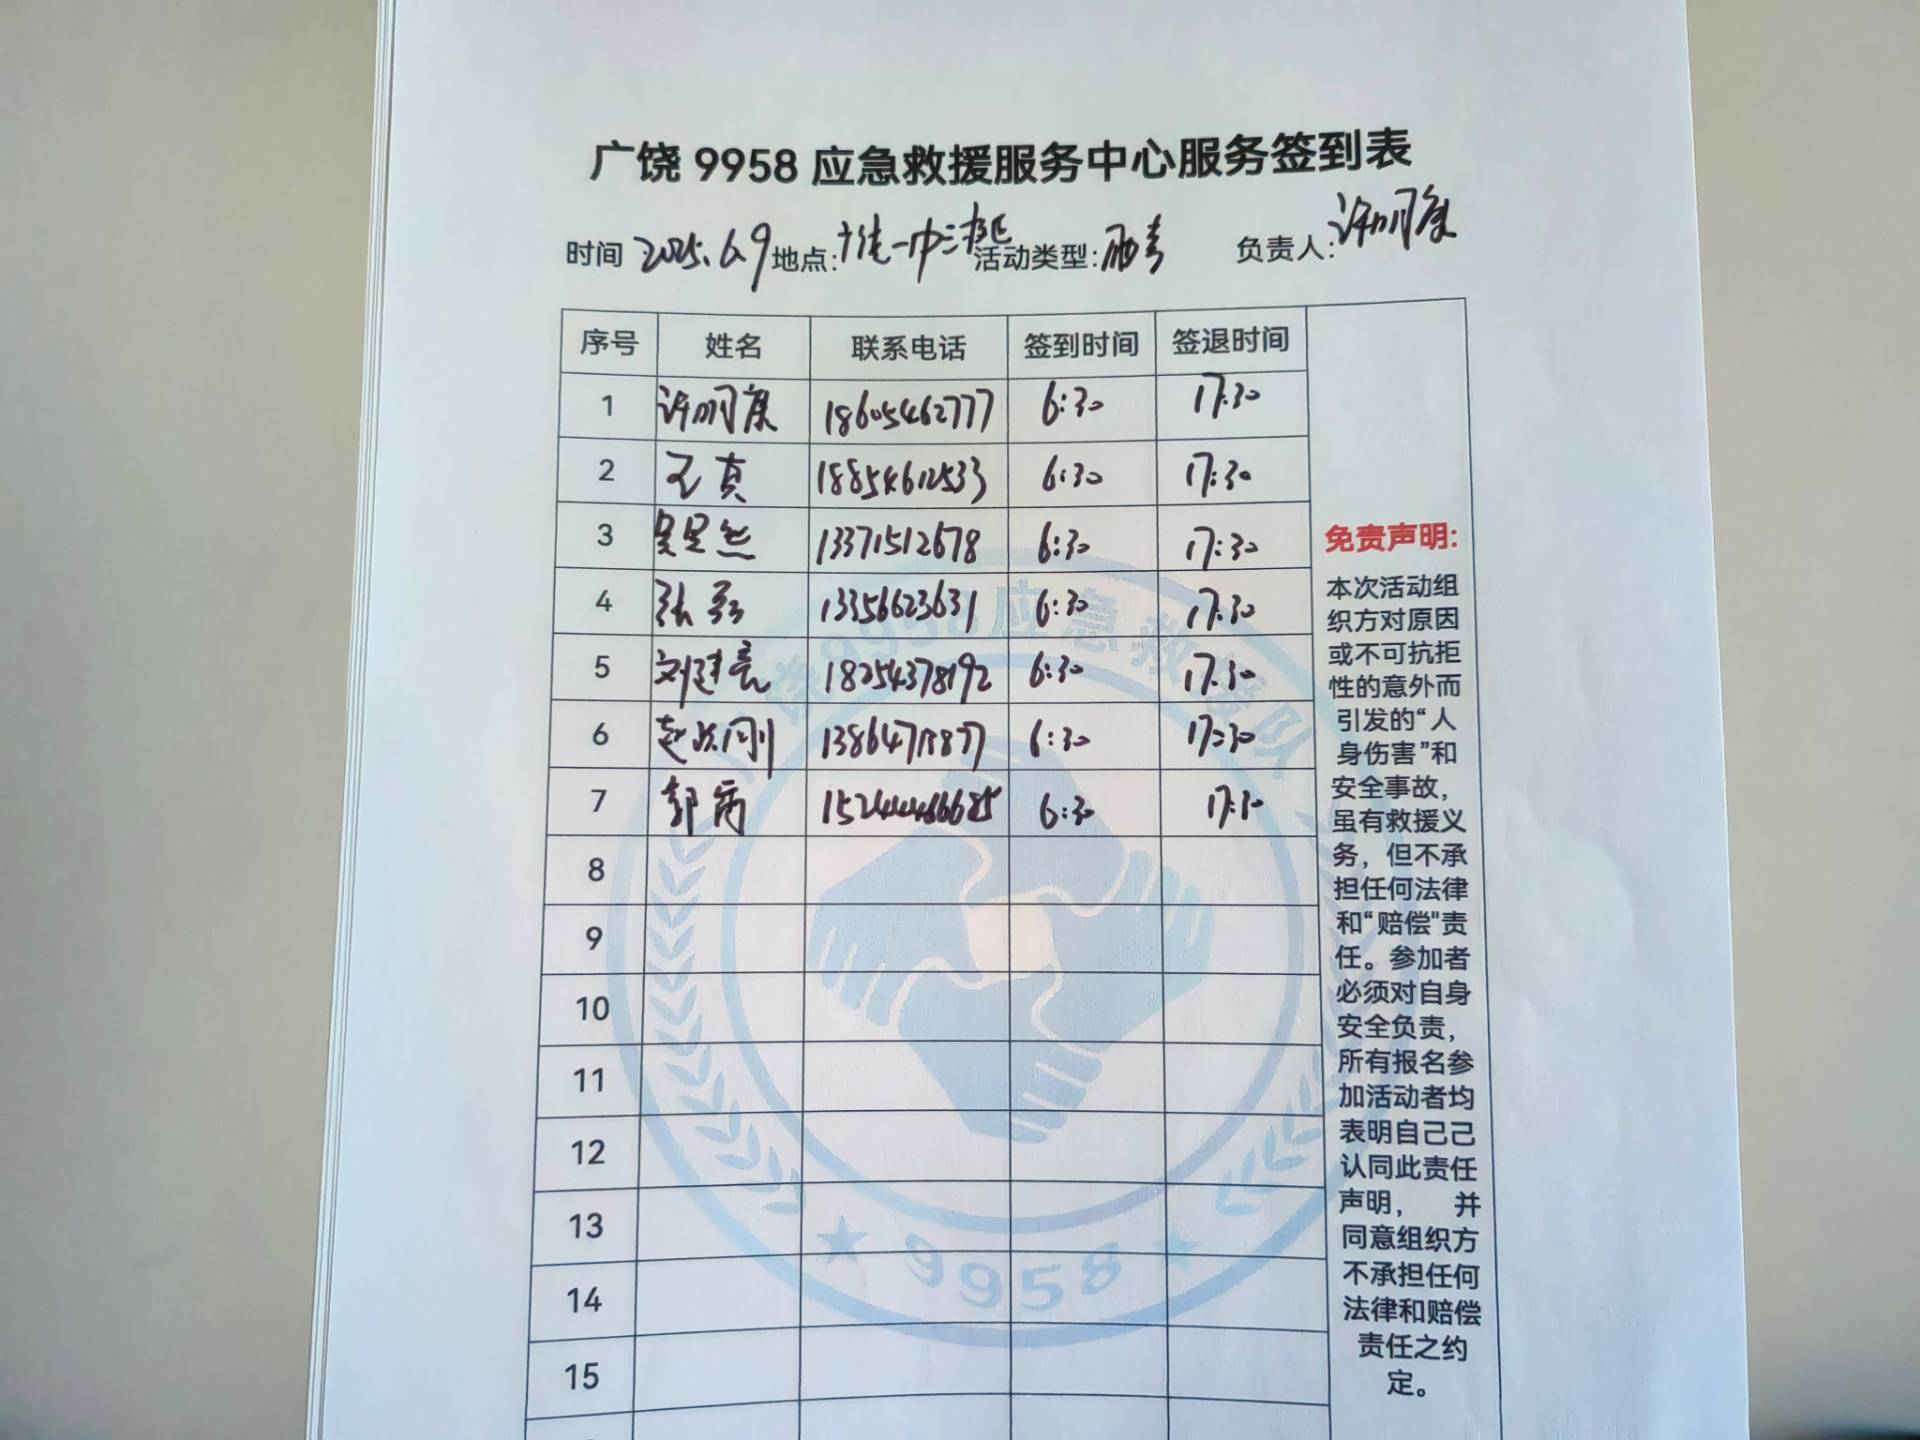 广饶 9958 应急救援服务中心服务签到表
时间 2025.6.9 地点: 一中 活动类型: 负责人: 许明康
序号 姓名 联系电话 签到时间 签退时间
1 许明康 18605462777 6:30 17:30
2 王真 18854612533 6:30 17:30
3 13371512678 6:30 17:30
4 张 13356623631 6:30 17:30
5 刘建亮 18254378192 6:30 17:30
6 赵 刚 6:30 17:30
7 郭 6:30 17:30
8
9
10
11
12
13
14
15
免责声明:
本次活动组
织方对原因
或不可抗拒
性的意外而
引发的“人
身伤害”和
安全事故，
虽有救援义
务，但不承
担任何法律
和“赔偿"责
任。参加者
必须对自身
安全负责，
所有报名参
加活动者均
表明自己己
认同此责任
声明， 并
同意组织方
不承担任何
法律和赔偿
责任之约
定。
广饶9958应急救援队
9958